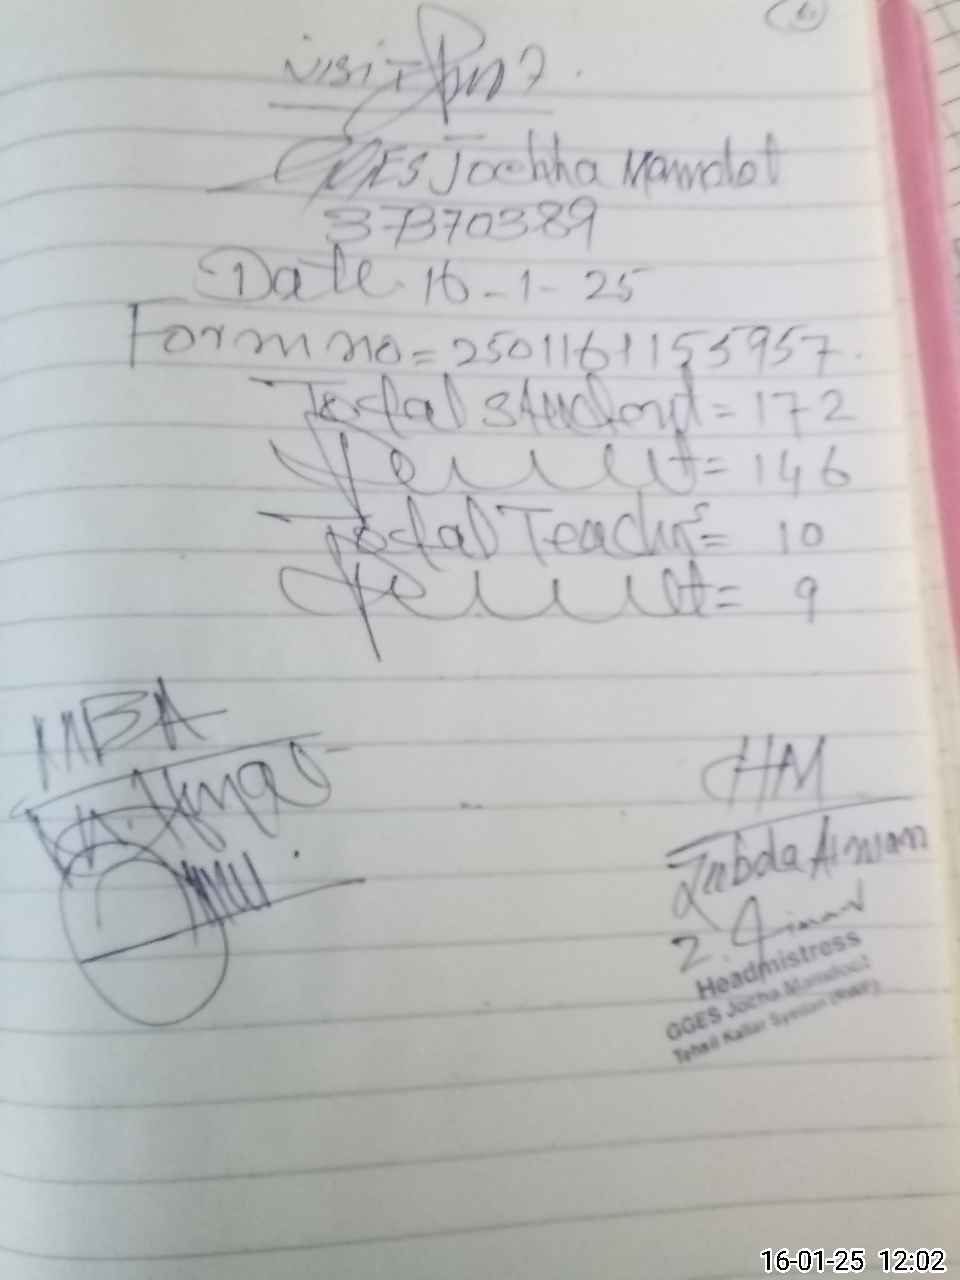 GGES Jochha Mamdot
37370389
Date 16-1-25
Form no = 2501161155957.
Total Student = 172
Present = 146
Total Teachrs = 10
Present = 9
MEA
HM
Zubda Aiman
Z. Aiman
Headmistress
GGES Jocha Mamdot
Tehsil Kallar Syedan (RWP)
16-01-25 12:02